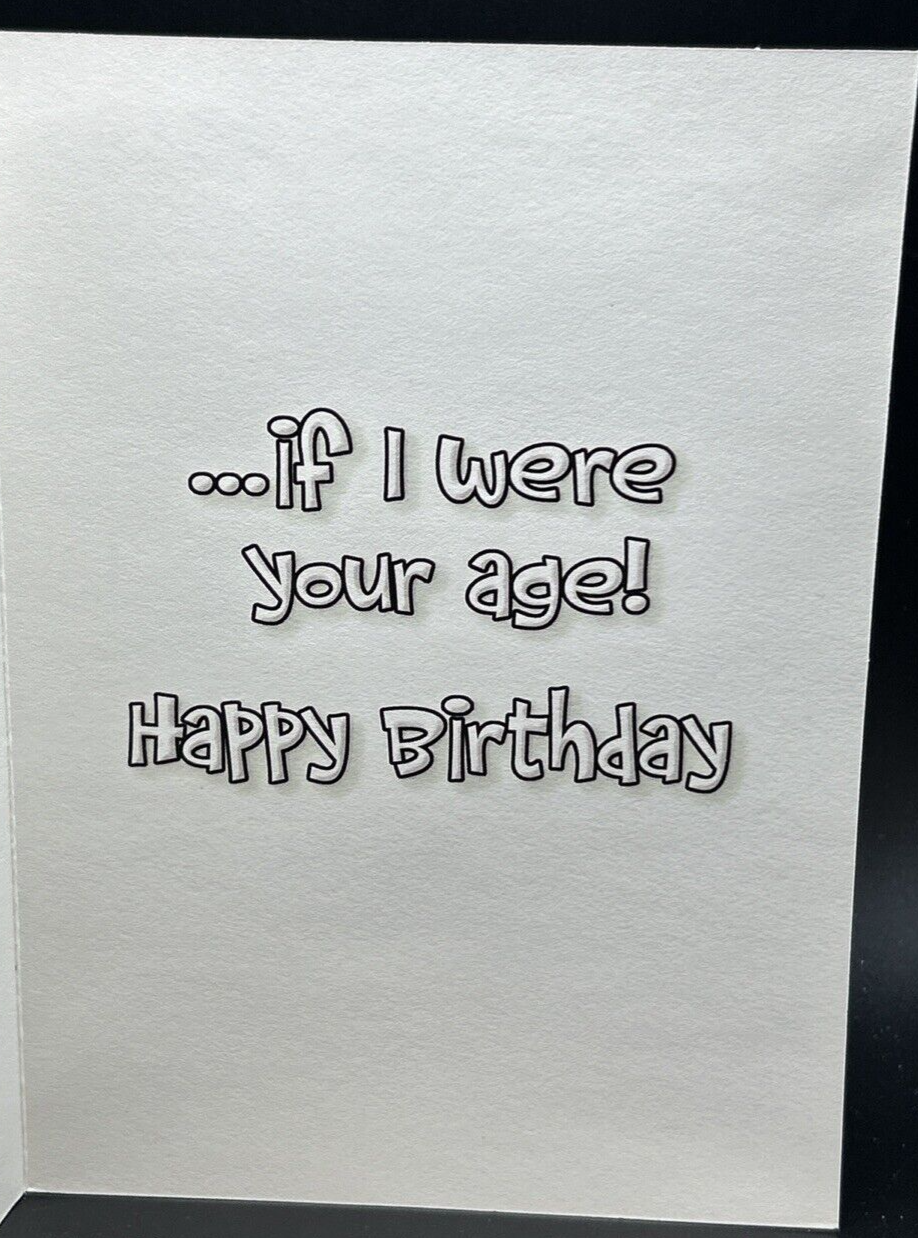 ...if I were
your age!
Happy Birthday